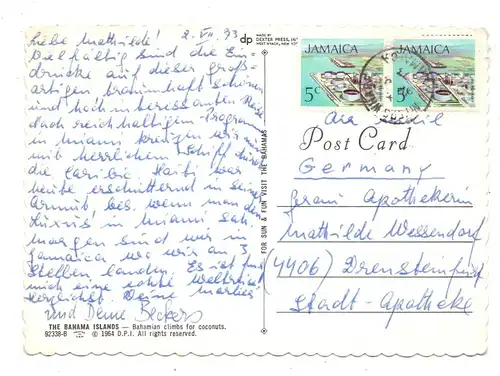 2. VII. 73
Liebe Mathilde!
Vielfältig sind die Ein-
drücke auf dieser groß-
artigen traumhaft schönen
und hochinteressanten Reise
nach reichhaltigem Programm
in Miami kreuzen wir nun
mit herrlichem Schiff durch
die Caribic. Haiti war
heute erschütternd in seiner
Armut bes. wenn man den
Luxus in Miami sah.
Morgen sind wir in
Jamaica wo wir an 3
Stellen landen. Es ist für
mich eine echte Weltreise
Herzlichst Deine
und Deine Beckers
THE BAHAMA ISLANDS — Bahamian climbs for coconuts.
92338-B © 1964 D.P.I. All rights reserved.
dp
MADE BY
DEXTER PRESS, INC
WEST NYACK, NEW YORK
FOR SUN & FUN VISIT THE BAHAMAS
JAMAICA
5c
JAMAICA
5c
Post Card
Germany
Frau Apothekerin
Mathilde Wessendorf
(4406) Drensteinfurt
Stadt-Apotheke